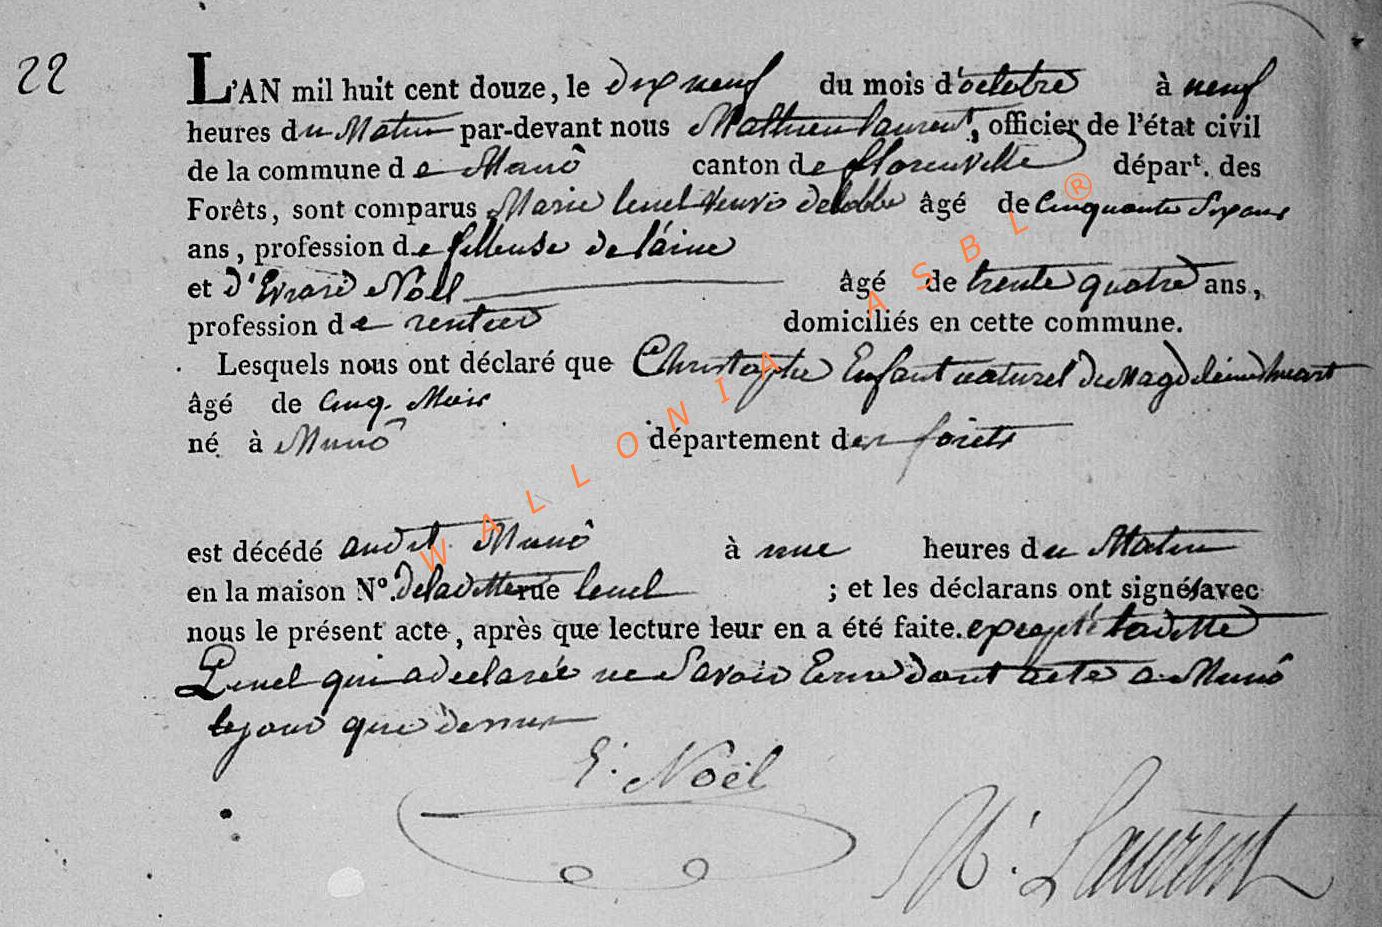 22
L'AN mil huit cent douze, le dix neuf du mois d'octobre à neuf
heures du Matin par-devant nous Mathieu laurent, officier de l'état civil
de la commune de Munô canton de florenville départ. des
Forêts, sont comparus Marie lenel veuve delobbe âgé de Cinquante Six ans
ans, profession de filleuse de laine
et d'Evrard Noël âgé de trente quatre ans,
profession de rentier domiciliés en cette commune.
Lesquels nous ont déclaré que Christophe Enfant naturel de Magdeleine huart
âgé de Cinq Mois
né à Munô département des forêts
est décédé audit Munô à une heures du Matin
en la maison N°. de laditte rue lenel ; et les déclarans ont signé avec
nous le présent acte, après que lecture leur en a été faite. excepté laditte
Lenel qui a declarée ne Savoir Ecrire dont acte a Munô
le jour que dessus
E. Noël
M. Laurent
WALLONIA ASBL ®